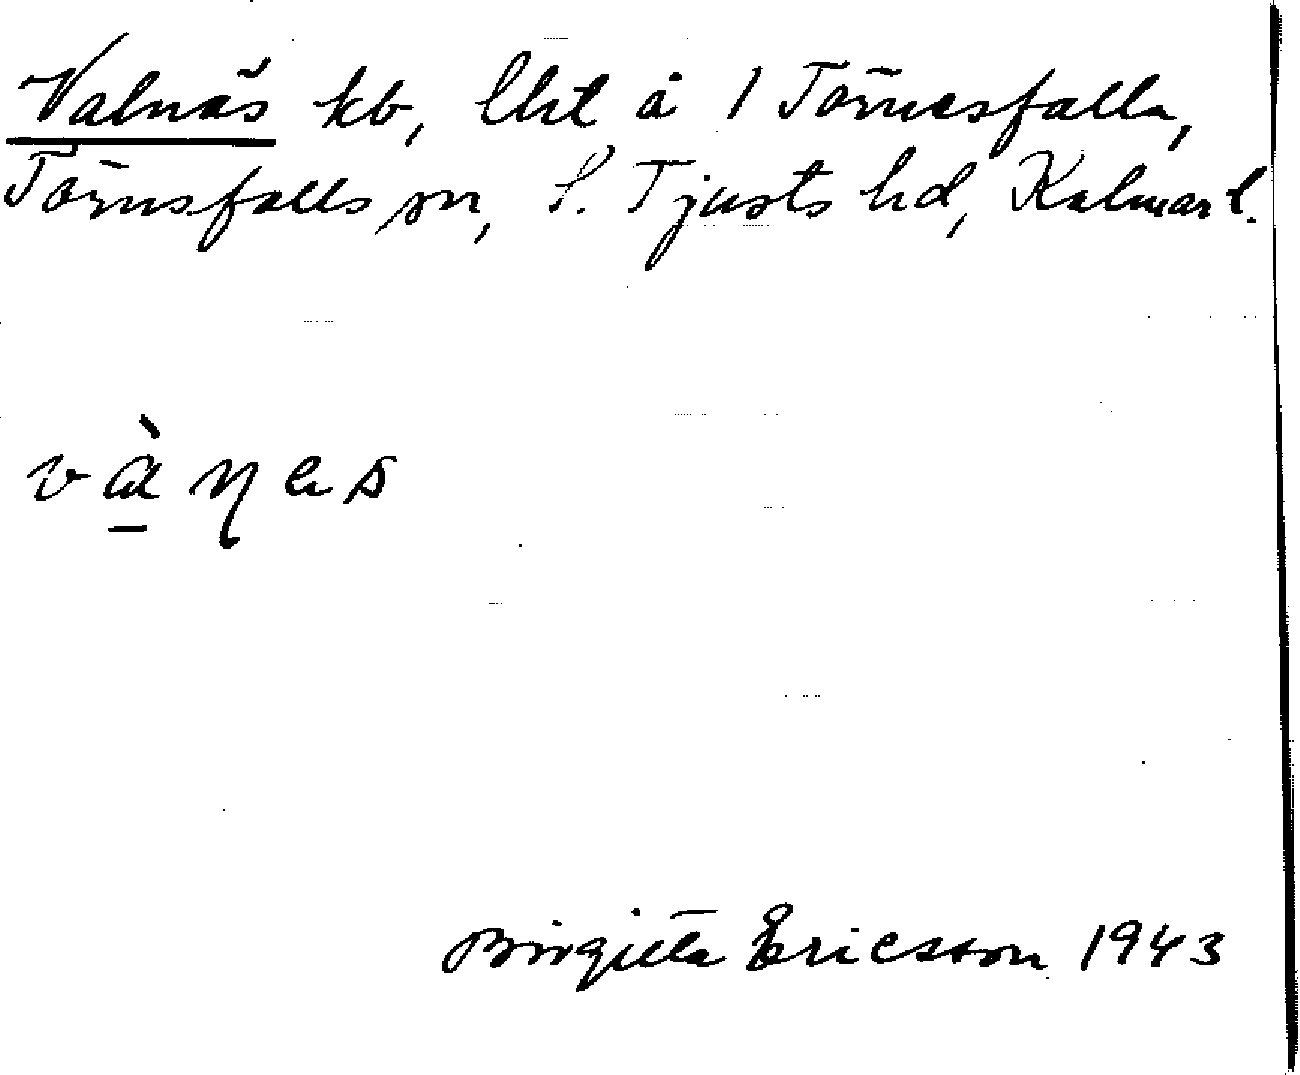 Valnäs kb, lht å 1 Törnesfalla,
Törnsfalls sn, S. Tjusts hd, Kalmar l.
Birgitta Ericsson 1943